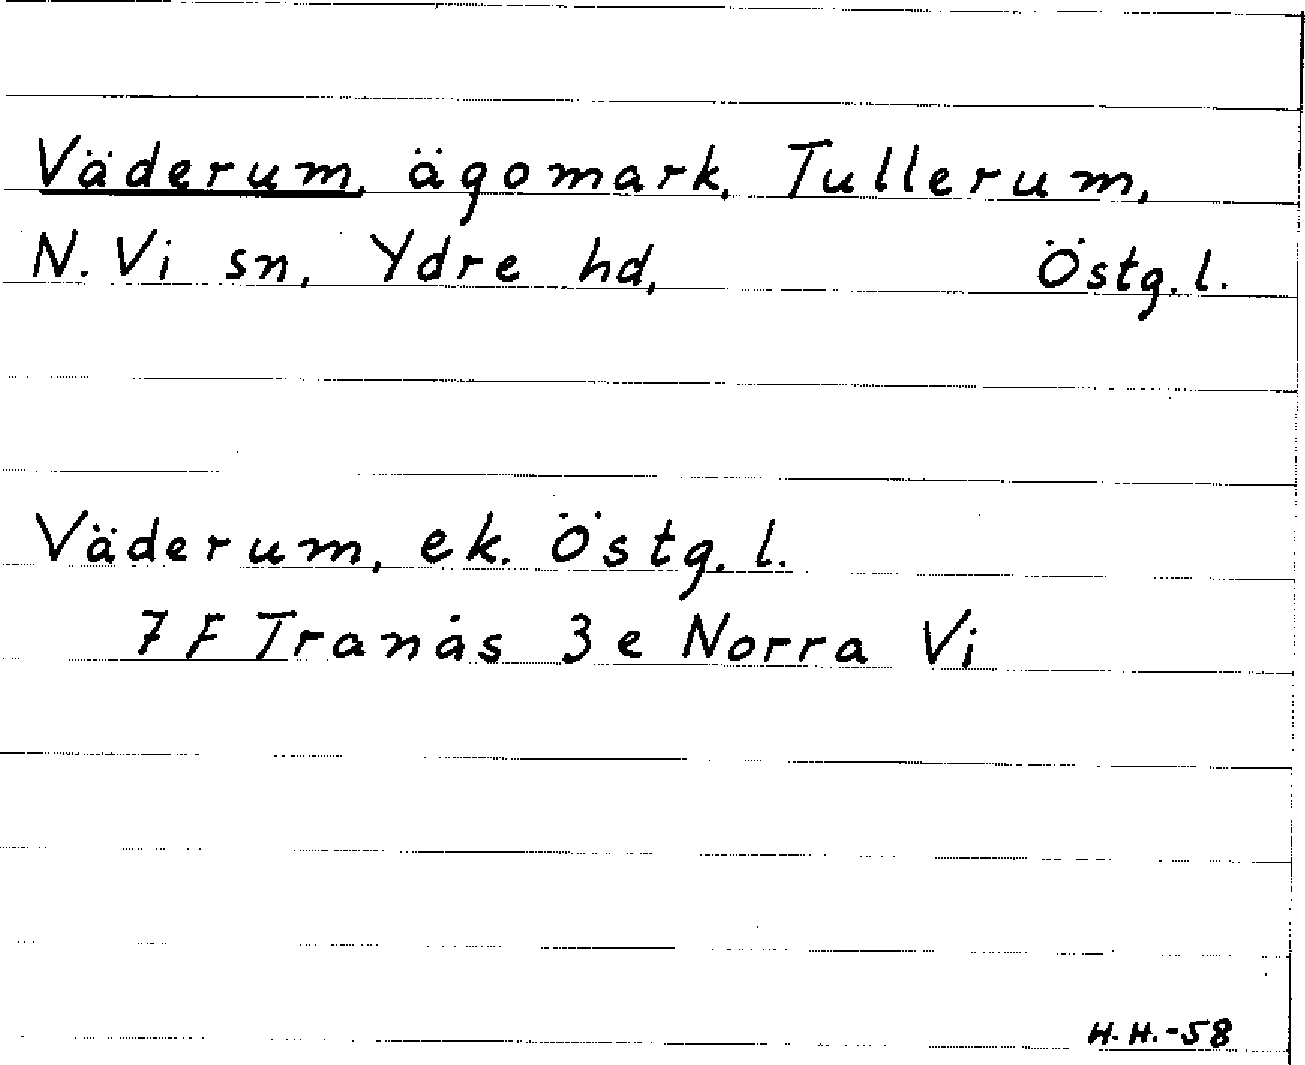 Väderum, ägomark, Tullerum,
N. Vi sn, Ydre hd, Östg. l.
Väderum, ek. Östg. l.
7 F Tranås 3 e Norra Vi
H. H. -58